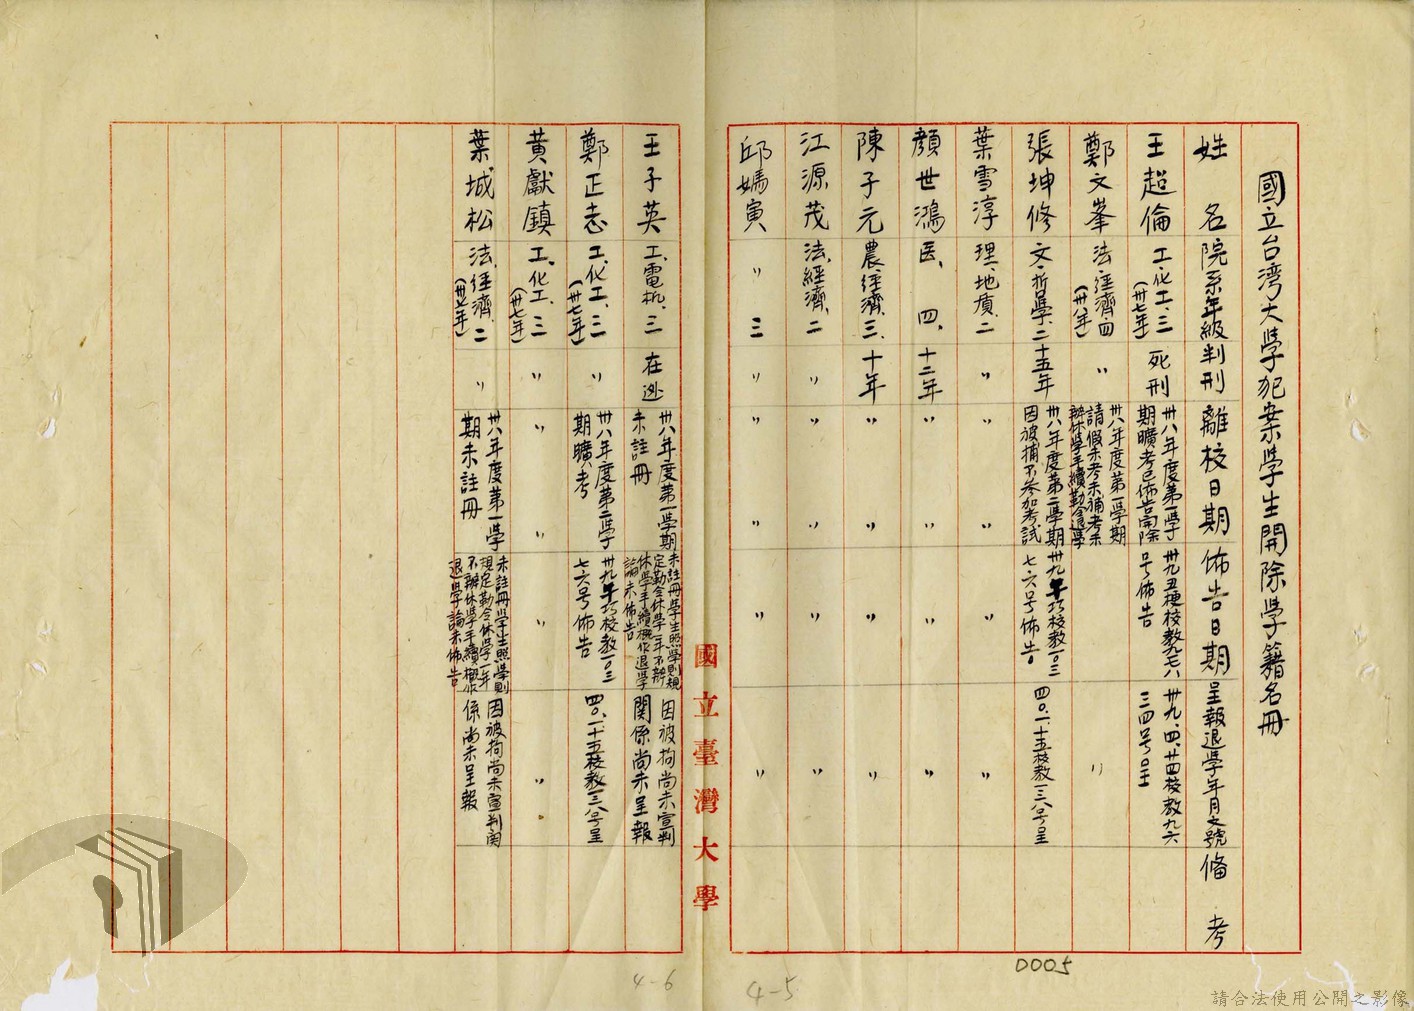 國立台湾大學犯案學生開除學籍名冊
姓名 院系年級 判刑 離校日期 佈告日期 呈報退學年月文號 俻考
王超倫 工、化工、三(卅七年) 死刑 卅八年度第一學期曠考已佈告開除 卅九、五梗校教九七八号佈告 卅九、四、廿四校教九六三四号呈
鄭文峯 法、經濟、四(卅八年) 〃 卅八年度第一學期請假未考未補考未辦休學手續勒令退學 〃
張坤修 文、哲學、二 十五年 卅八年度第二學期因被捕不参加考試 卅九年巧校教一〇三七六号佈告 四〇、一、十五校教一三八号呈
葉雪淳 理、地質、二 〃 〃 〃 〃 〃
顏世鴻 医、四、 十二年 〃 〃 〃 〃
陳子元 農、經濟、三、 十年 〃 〃 〃 〃
江源茂 法、經濟、二 〃 〃 〃 〃 〃
邱媽寅 〃 三 〃 〃 〃 〃 〃
國立臺灣大學
王子英 工、電机、三 在逃 卅八年度第一學期未註冊 未註冊學生照學則規定勒令休學一年不辦休學手續概作退學論未佈告 因被拘尚未宣判関係尚未呈報
鄭正志 工、化工、三(卅七年) 〃 卅八年度第二學期曠考 卅九年巧校教一〇三七六号佈告 四〇、一、十五校教一三八号呈
黃獻鎮 工、化工、三(卅七年) 〃 〃 〃 〃 〃
葉城松 法、經濟、二(卅七年) 〃 卅八年度第一學期未註冊 未註冊學生照學則規定勒令休學一年不辦休學手續概作退學論未佈告 因被拘尚未宣判関係尚未呈報
0005
4-6
4-5
請合法使用公開之影像